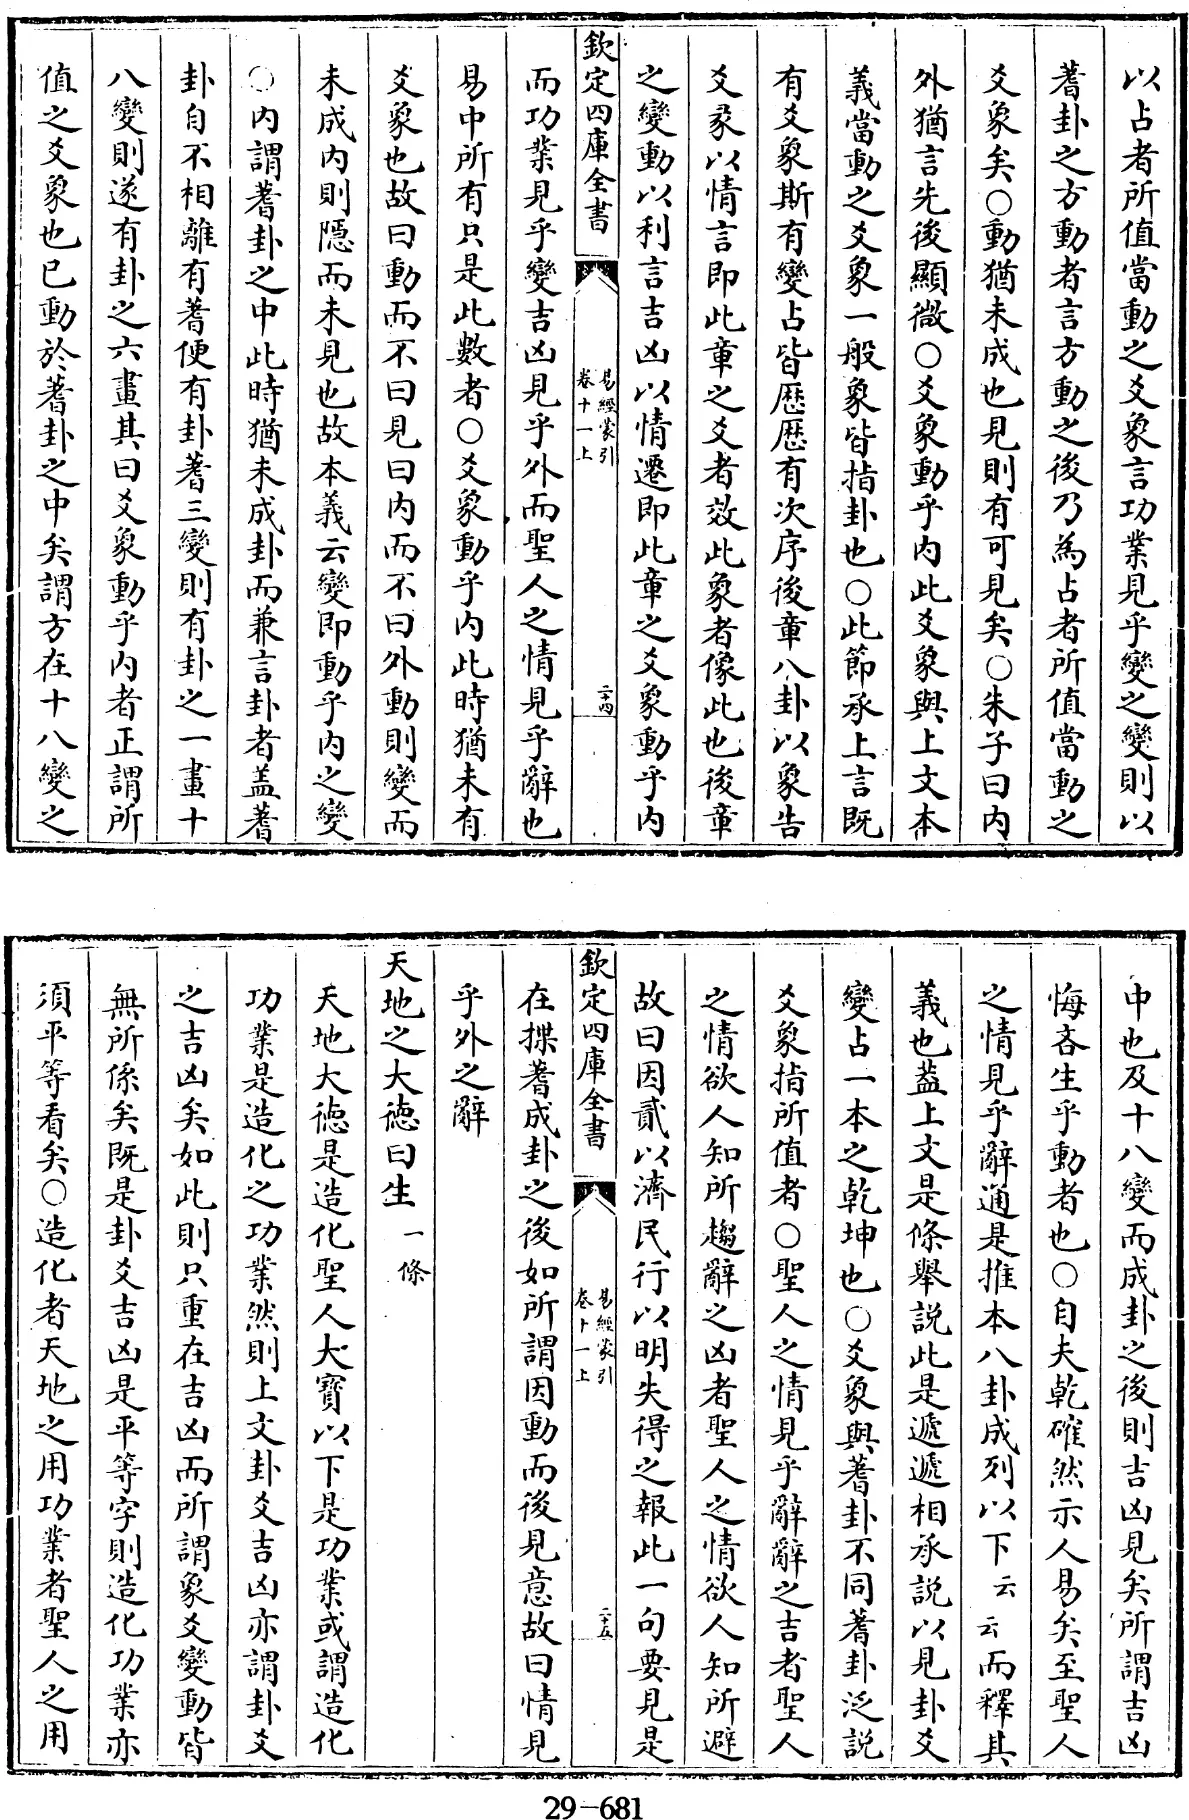 以占者所值當動之爻象言功業見乎變之變則以
蓍卦之方動者言方動之後乃為占者所值當動之
爻象矣○動猶未成也見則有可見矣○朱子曰内
外猶言先後顯微○爻象動乎内此爻象與上文本
義當動之爻象一般象皆指卦也○此節承上言既
有爻象斯有變占皆歴歴有次序後章八卦以象告
爻彖以情言即此章之爻者效此象者像此也後章
之變動以利言吉凶以情遷即此章之爻象動乎内
欽定四庫全書
易經蒙引
卷十一上
二十四
而功業見乎變吉凶見乎外而聖人之情見乎辭也
易中所有只是此數者○爻象動乎内此時猶未有
爻象也故曰動而不曰見曰内而不曰外動則變而
未成内則隠而未見也故本義云變即動乎内之變
○内謂蓍卦之中此時猶未成卦而兼言卦者盖蓍
卦自不相離有蓍便有卦蓍三變則有卦之一畫十
八變則遂有卦之六畫其曰爻象動乎内者正謂所
值之爻象也已動於蓍卦之中矣謂方在十八變之
中也及十八變而成卦之後則吉凶見矣所謂吉凶
悔吝生乎動者也○自夫乾確然示人易矣至聖人
之情見乎辭通是推本八卦成列以下云云而釋其
義也蓋上文是條舉説此是遞遞相承説以見卦爻
變占一本之乾坤也○爻象與蓍卦不同蓍卦泛説
爻象指所值者○聖人之情見乎辭辭之吉者聖人
之情欲人知所趨辭之凶者聖人之情欲人知所避
故曰因貳以濟民行以明失得之報此一句要見是
欽定四庫全書
易經蒙引
卷十一上
二十五
在揲蓍成卦之後如所謂因動而後見意故曰情見
乎外之辭
天地之大德曰生 一條
天地大德是造化聖人大寳以下是功業或謂造化
功業是造化之功業然則上文卦爻吉凶亦謂卦爻
之吉凶矣如此則只重在吉凶而所謂象爻變動皆
無所係矣既是卦爻吉凶是平等字則造化功業亦
須平等看矣○造化者天地之用功業者聖人之用
29-681